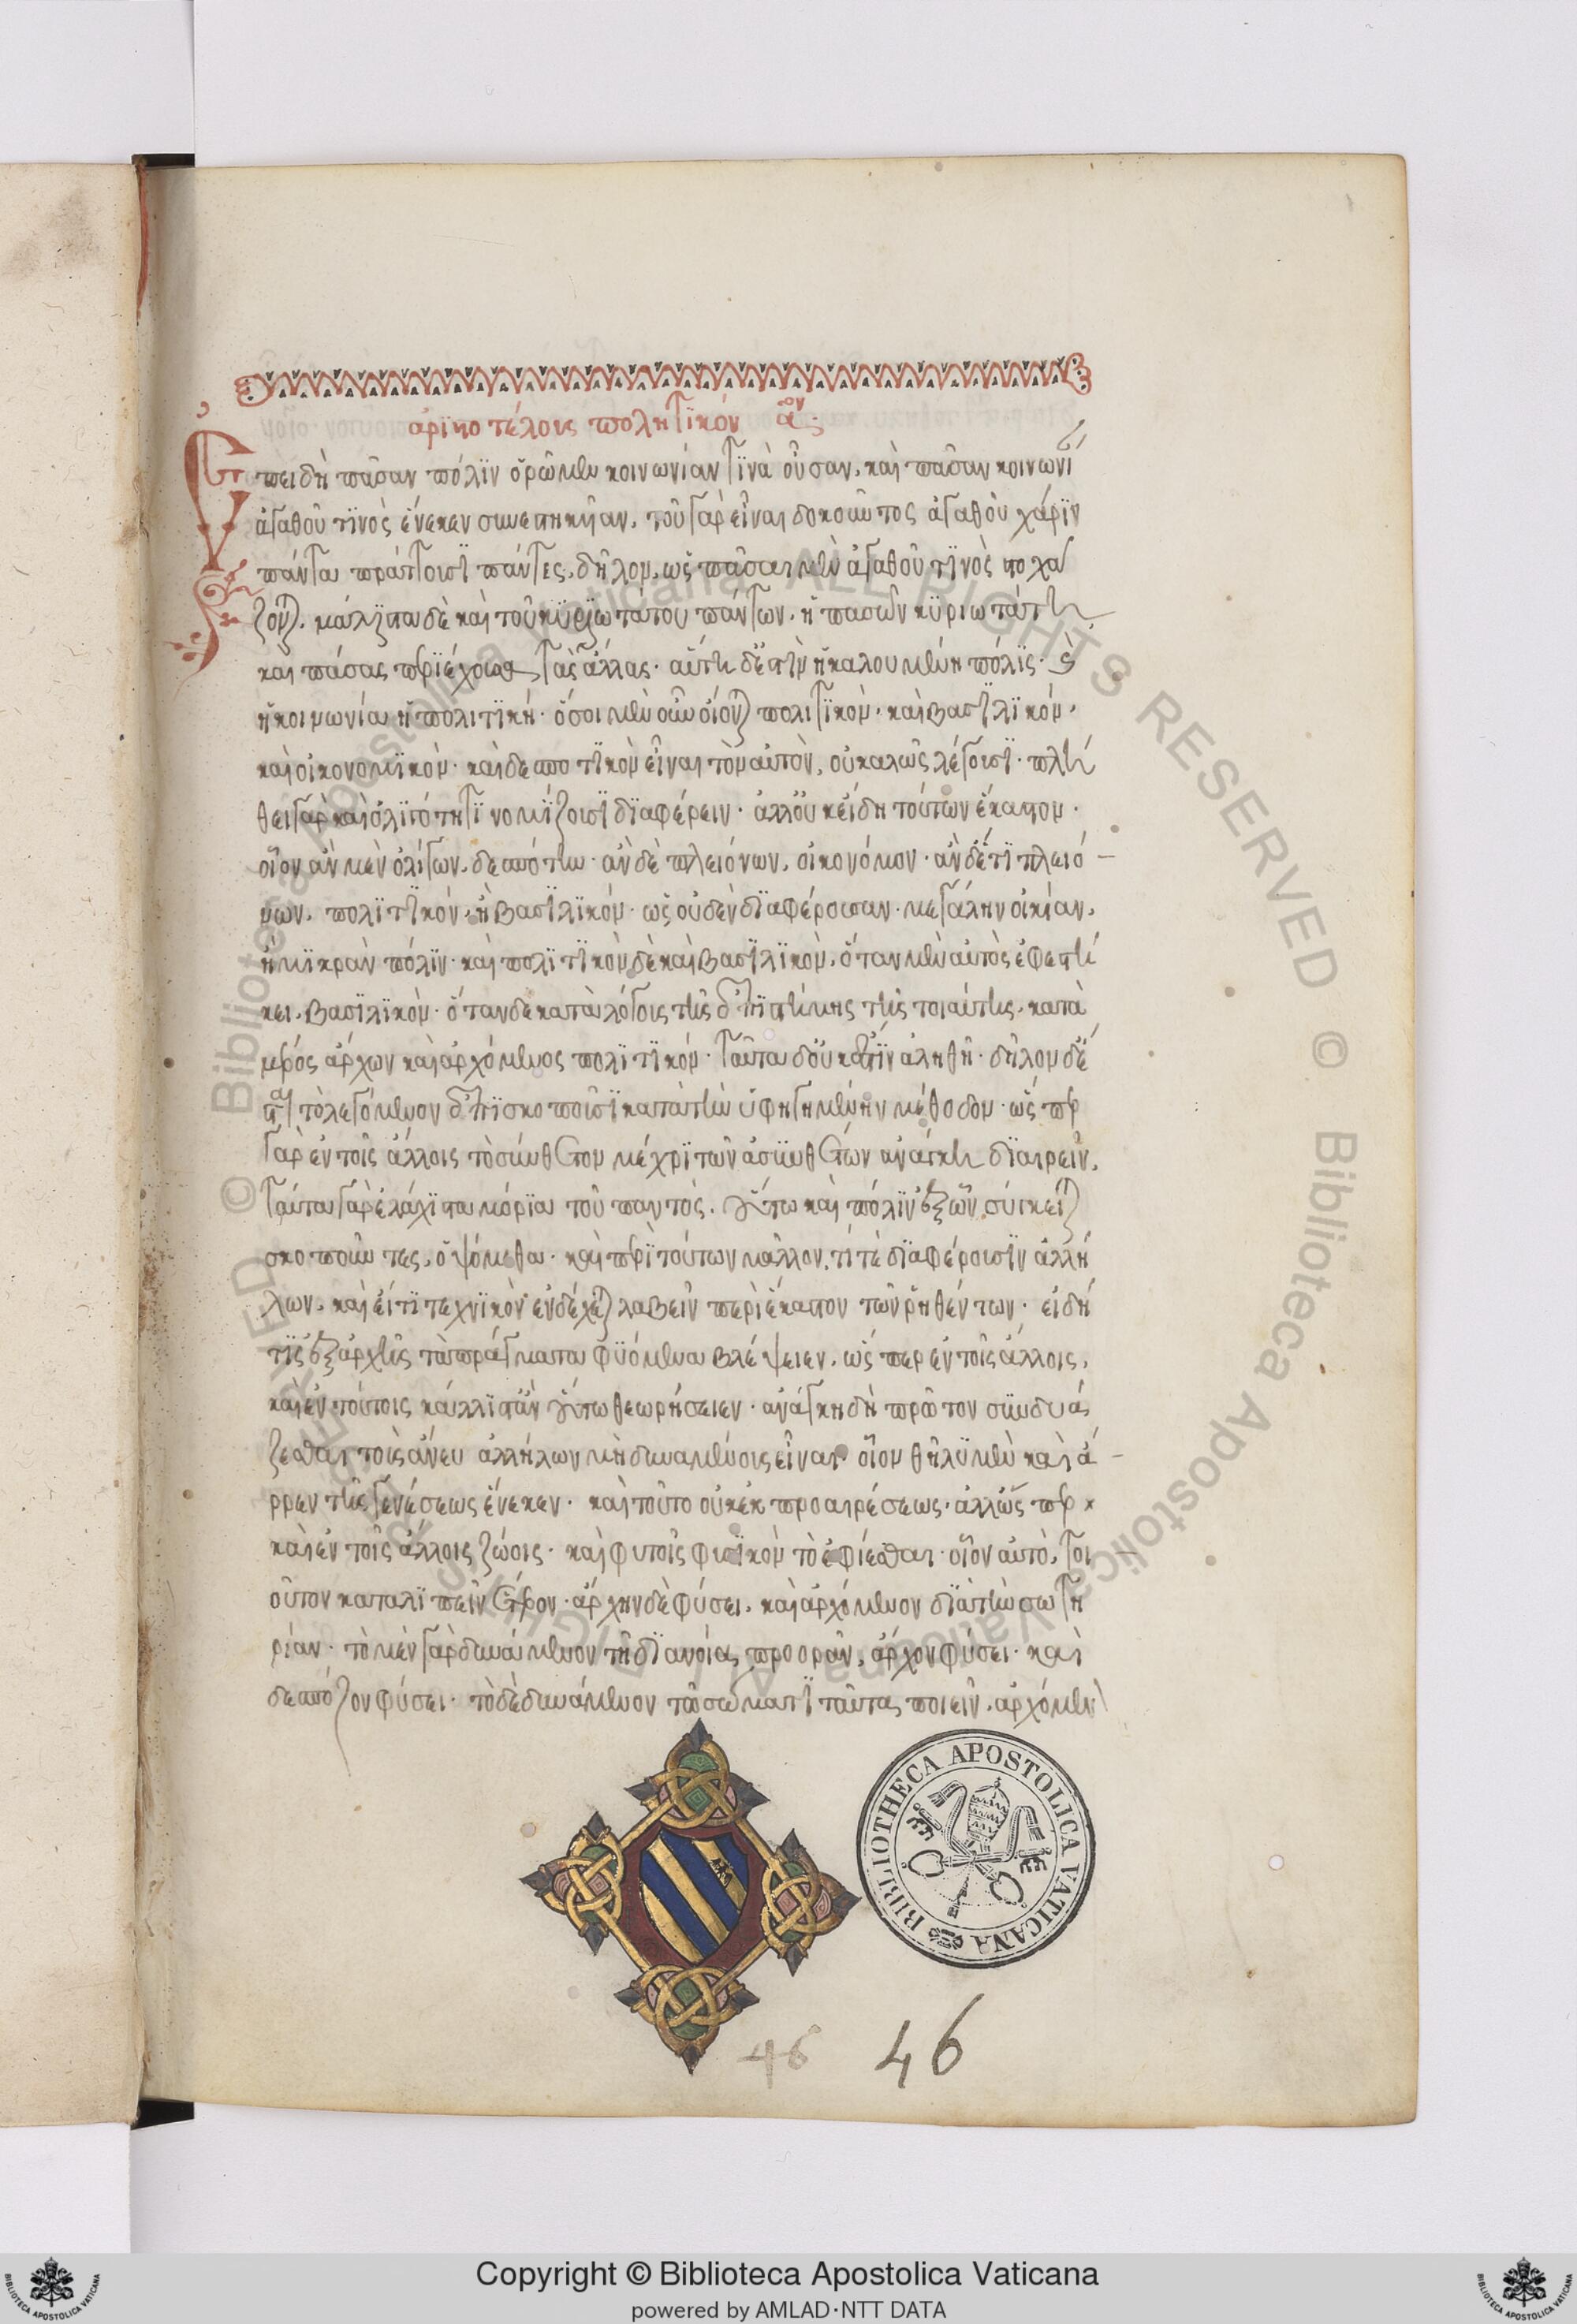 ἀριστοτέλους πολητικόν αον
Ἐπειδὴ πᾶσαν πόλϊν ὁρῶμεν κοινωνίαν τϊνὰ οὖσαν, καὶ πᾶσαν κοινωνί
ἀγαθοῦ τϊνὸς ἕνεκεν συνεστηκῆαν, τοῦ γὰρ εἶναι δοκοῦντος ἀγαθοῦ χάρϊν
πάντα πράττουσϊ πάντες, δῆλον, ὡς πᾶσαι μὲν ἀγαθοῦ τϊνὸς στοχά
ζονται. μάλϊστα δὲ καὶ τοῦ κϋρϊωτάτου πάντων, ἡ πασῶν κϋριωτάτη
καὶ πάσας περϊέχουσα τὰς ἄλλας. αὕτη δ' ἐστὶν ἡ καλουμένη πόλϊς. καὶ
ἡ κοινωνία ἡ πολιτϊκή. ὅσοι μὲν οὖν οἴονται πολιτϊκὸν, καὶ βασϊλϊκόν,
καὶ οἰκονομϊκόν. καὶ δεσποτϊκὸν εἶναι τὸν αὐτὸν, οὐ καλῶς λέγουσϊ. πλή
θει γὰρ καὶ ὀλϊγότητϊ νομΐζουσϊ δϊαφέρειν. ἀλλ' οὐκ εἴδη τούτων ἕκαστον.
οἷον ἂν μὲν ὀλίγων, δεσπότην. ἂν δὲ πλειόνων, οἰκονόμον. ἂν δ' ἔτϊ πλειό
νων, πολϊτϊκόν, ἢ βασϊλϊκόν. ὡς οὐδὲν δϊαφέρουσαν. μεγάλην οἰκίαν,
ἢ μϊκρὰν πόλϊν. καὶ πολϊτϊκὸν δὲ καὶ βασϊλϊκὸν, ὅταν μὲν αὐτὸς ἐφεστή
κει, βασϊλϊκόν. ὅταν δὲ κατὰ λόγους τῆς ἐπϊστήμης τῆς τοιαύτης, κατὰ
μέρος ἄρχων καὶ ἀρχόμενος πολϊτϊκόν. ταῦτα δ' οὐκ ἐστϊν ἀληθῆ. δῆλον δ' ἔ
σται τὸ λεγόμενον ἐπϊσκοποῦσϊ κατὰ τὴν ὑφηγημένην μέθοδον. ὥσπερ
γὰρ ἐν τοῖς ἄλλοις τὸ σύνθετον μέχρϊ τῶν ἀσϋνθέτων ἀνάγκη δϊαιρεῖν,
ταῦτα γὰρ ἐλάχϊστα μόρϊα τοῦ παντός. οὕτω καὶ πόλϊν ἐξ ὧν σύγκειται
σκοποῦντες, ὀψόμεθα. καὶ περὶ τούτων μᾶλλον, τί τὲ δϊαφέρουσϊν ἀλλή
λων, καὶ εἴ τϊ τεχνϊκὸν ἐνδέχεται λαβεῖν περὶ ἕκαστον τῶν ῥηθέντων. εἰ δή
τϊς ἐξ ἀρχῆς τὰ πράγματα φϋόμενα βλέψειεν, ὥσπερ ἐν τοῖς ἄλλοις,
καὶ ἐν τούτοις κάλλϊστ' ἂν οὕτω θεωρήσειεν. ἀνάγκη δὴ πρῶτον σϋνδυά
ζεσθαι τοὺς ἄνευ ἀλλήλων μὴ δυναμένους εἶναι οἷον θῆλϋ μὲν καὶ ἄ
ρρεν τῆς γενέσεως ἕνεκεν. καὶ τοῦτο οὐκ ἐκ προαιρέσεως, ἀλλ' ὥσπερ
καὶ ἐν τοῖς ἄλλοις ζώοις. καὶ φυτοῖς φυσϊκὸν τὸ ἐφίεσθαι. οἷον αὐτὸ, τοι
οῦτον καταλϊπεῖν ἕτερον. ἄρχην δὲ φύσει, καὶ ἀρχόμενον δϊὰ τὴν σωτη
ρίαν. τὸ μὲν γὰρ δυνάμενον τῇ δϊανοίᾳ προορᾶν, ἄρχον φύσει. καὶ
δεσπόζον φύσει. τὸ δὲ δυνάμενον τῷ σώματϊ ταῦτα ποιεῖν, ἀρχόμεν
BIBLIOTHECA APOSTOLICA VATICANA
46 46
© Biblioteca Apostolica Vaticana ALL RIGHTS RESERVED
Copyright © Biblioteca Apostolica Vaticana
powered by AMLAD·NTT DATA